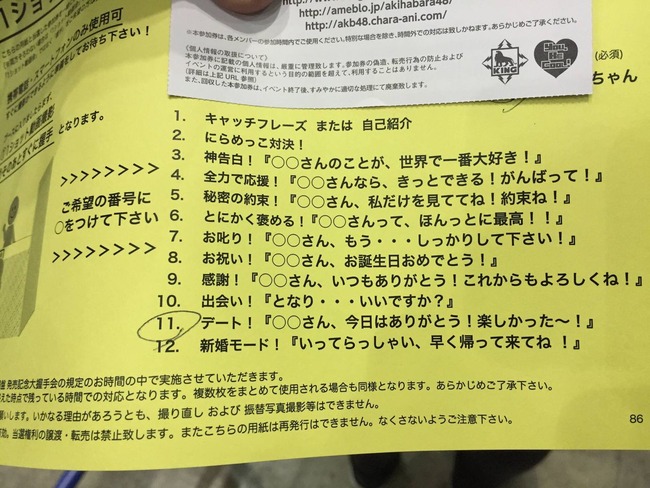 http://ameblo.jp/akihabara48/
http://akb48.chara-ani.com/
※本参加券は、各メンバーの参加時間内でご使用ください。特別な場合を除き、時間外での対応は致しかねます。あらかじめご了承ください。
《個人情報の取扱について》
本参加券に記載の個人情報は、厳重に管理致します。参加券の偽造、転売行為の防止および
イベントの運営に利用するという目的の範囲を超えて、利用することはありません。
(詳細は上記URL参照)
また、回収した本参加券は、イベント終了後、すみやかに適切な処理にて廃棄致します。
KING
You, Be Cool!
(必須)
ちゃん
のみ使用可
をしてお待ち下さい!
となります。
>>>>>>>>
ご希望の番号に
○をつけて下さい
>>>>>>>>
1. キャッチフレーズ または 自己紹介
2. にらめっこ対決!
3. 神告白!『○○さんのことが、世界で一番大好き!』
4. 全力で応援!『○○さんなら、きっとできる!がんばって!』
5. 秘密の約束!『○○さん、私だけを見ててね!約束ね!』
6. とにかく褒める!『○○さんって、ほんっとに最高!!』
7. お叱り!『○○さん、もう・・・しっかりして下さい!』
8. お祝い!『○○さん、お誕生日おめでとう!』
9. 感謝!『○○さん、いつもありがとう!これからもよろしくね!』
10. 出会い!『となり・・・いいですか?』
11. デート!『○○さん、今日はありがとう!楽しかった〜!』
12. 新婚モード!『いってらっしゃい、早く帰って来てね!』
発売記念大握手会の規定のお時間の中で実施させていただきます。
た時点で残っている時間での対応となります。複数枚をまとめて使用される場合も同様となります。あらかじめご了承下さい。
願いします。いかなる理由があろうとも、撮り直し および 振替写真撮影等はできません。
効。当選権利の譲渡・転売は禁止致します。またこちらの用紙は再発行はできません。なくさないようご注意下さい。
86